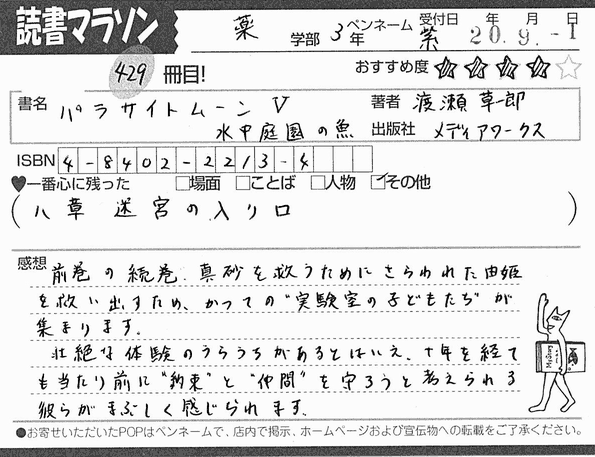 読書マラソン
薬 学部 3年 ペンネーム 紫 受付日 年 月 日
20.9.-1
429 冊目!
おすすめ度 ★★★★☆
書名 パラサイトムーン V 著者 渡瀬草一郎
水中庭園の魚 出版社 メディアワークス
ISBN 4-8402-2213-4
♥一番心に残った □場面 □ことば □人物 ☑その他
(八草 迷宮の入り口)
感想 前巻の続巻。真砂を救うためにさらわれた由姫
を救い出すため、かつての"実験室の子どもたち"が
集まります。
壮絶な体験のうらうちがあるとはいえ、十年を経て
も当たり前に"約束"と"仲間"を守ろうと考えられる
彼らがまぶしく感じられます。
●お寄せいただいたPOPはペンネームで、店内で掲示、ホームページおよび宣伝物への転載をご了承ください。